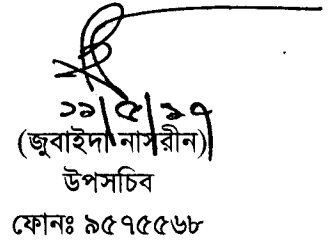 ১১/৫/১৭
(জুবাইদা নাসরীন)
উপসচিব
ফোনঃ ৯৫৭৫৫৬৮